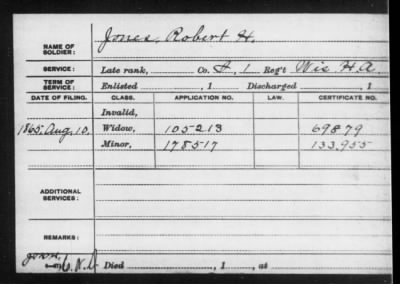 NAME OF SOLDIER: Jones, Robert H.
SERVICE: Late rank, Co. H, 1 Reg't Wis H.A.
TERM OF SERVICE: Enlisted , 1 Discharged , 1
DATE OF FILING. CLASS. APPLICATION NO. LAW. CERTIFICATE NO.
Invalid,
1865, Aug, 10, Widow, 105213 69879
Minor, 178517 133,955
ADDITIONAL SERVICES:
REMARKS:
Died , 1 , at